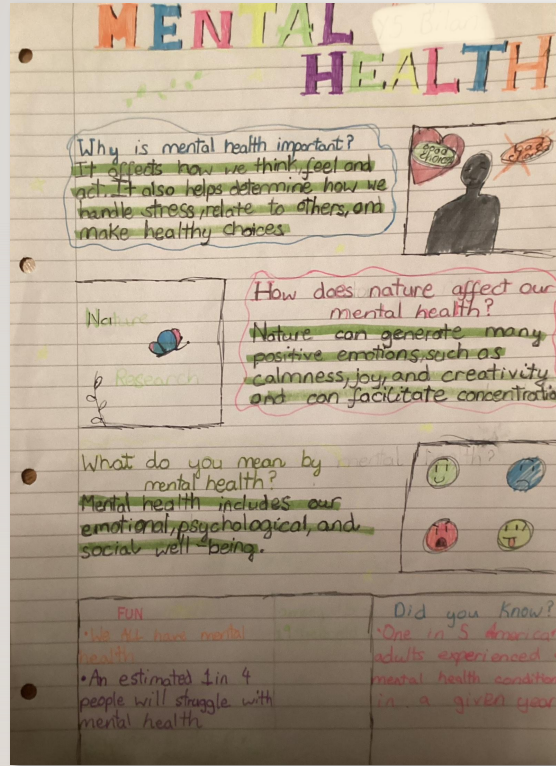 MENTAL
HEALTH
Why is mental health important?
It affects how we think, feel and
act. It also helps determine how we
handle stress, relate to others, and
make healthy choices.
Good
choices
Bad
Nature
Research
How does nature affect our
mental health?
Nature can generate many
positive emotions, such as
calmness, joy, and creativity
and can facilitate concentratio
What do you mean by
mental health?
Mental health includes our
emotional, psychological, and
social well-being.
FUN
•We ALL have mental
health
•An estimated 1 in 4
people will struggle with
mental health
Did you know?
•One in 5 American
adults experienced
mental health condition
in a given year